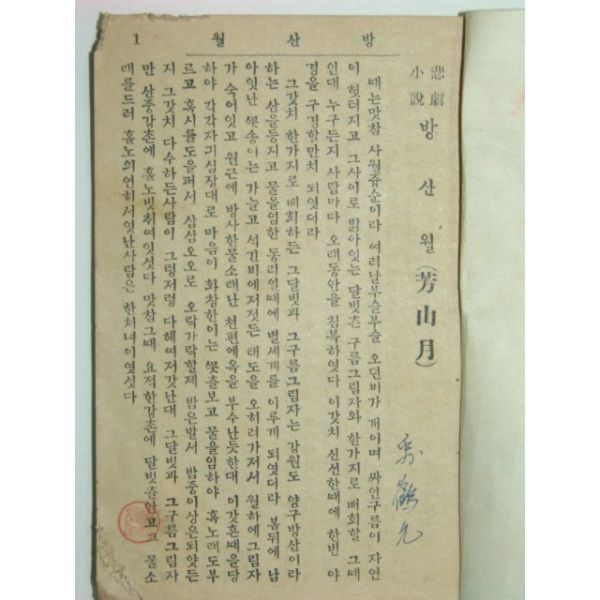 방산월 1
悲劇小說 방산월(芳山月)
때는맛참 사월중순이라 여러날부슬부슬 오던비가 개이며 싸인구름이 자연
이 헛터지고 그사이로 밝아잇는 달빗츤 구름그림자와 한가지로 배회할 그때
인대 누구든지 사람마다 오래동안을 침복하엿다 이갓치 신선한때에 한번 야
경을 구경할만치 되엿더라
그갓치 한가지로 배회하든 그달빗과 그구름그림자는 강원도 양구방산이라
하는 산을등지고 물을임한 동리엽때에 별세계를 이루게 되엿더라 봄뒤에 남
아잇난 꼿송이는 가늘고 석긴비에저젓든 태도을 오히려가저서 월하에그림자
가 숙어잇고 원근에 방사한물소래난 천편에옥을 부수난듯한대 이갓흔때을당
하야 각각자긔심장대로 마음이 화창한이는 꼿츨보고 물을임하야 혹노래도부
르고 혹시률도을퍼서 삼삼오오로 오락가락할제 밤은발서 밤중이상은되얏든
지 그갓치 다수하든사람이 그렁저렁 다헤여저갓난대 그달빗과 그구름그림자
만 산중강촌에 홀노빗취여잇섯다 맛참그때 요적한강촌에 달빗츨안고그물소
래를드러 홀노의연히서잇난사람은 한처녀이엿섯다